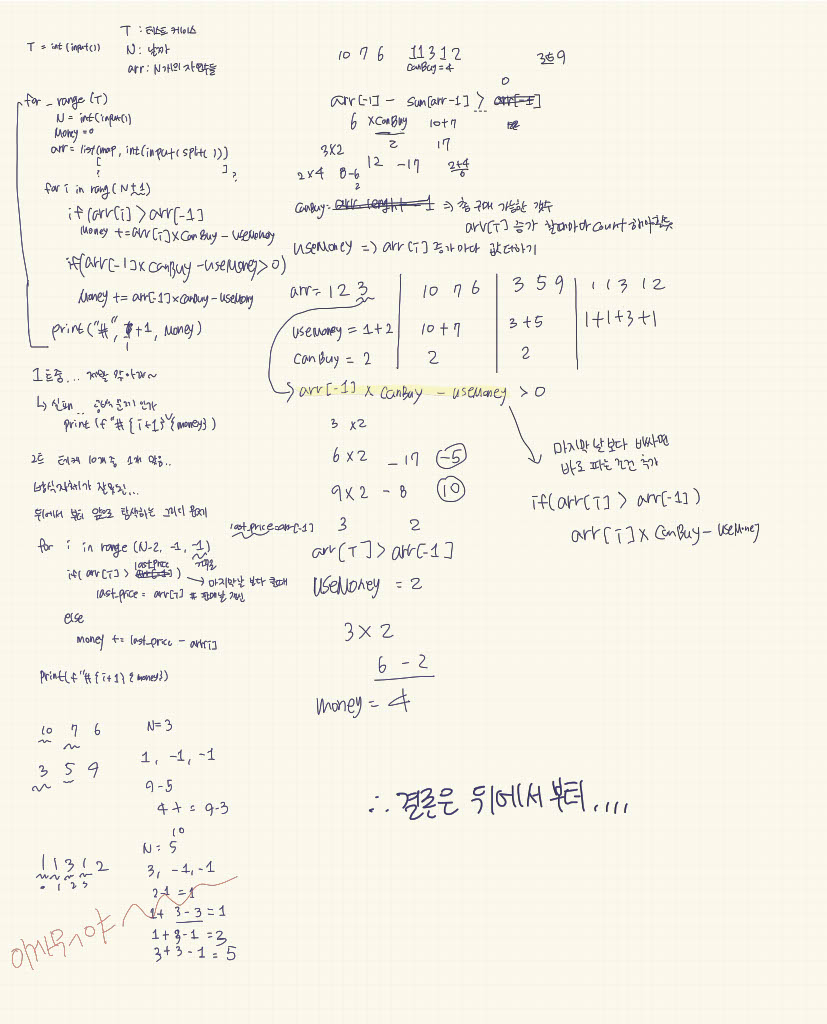 T : 테스트 케이스
T = int(input())
N : 날짜
arr : N개의 자연수들
for _ range(T)
N = int(input())
Money = 0
arr = list(map, int(input().split( ))
[ ] ?
for i in rang(N+1)
if(arr[i] > arr[-1]
Money += arr[i]×CanBuy - UseMoney
if(arr[-1]×CanBuy-UseMoney>0)
Money += arr[-1]×CanBuy-useMony
print("#", i+1, money)
1트중...
↳ 실패..
print(f"#{i+1} {money})
2트 테케 10개중 1개 맞음..
방식자체가 잘못된...
뒤에서 부터 앞으로 탐색하는 그리디 문제
last_price=arr[-1]
for i in range(N-2, -1, -1)
last_price
if(arr[i] > arr[-1])
→ 마지막날 보다 클때
last_price = arr[i] # 판매날 갱신
else
money += last_price - arr[i]
print(f"#{i+1} {money})
10 7 6
N=3
1, -1, -1
3 5 9
9-5
4 += 9-3
10
1 1 3 1 2
0 1 2 3
N = 5
3, -1, -1
2-1 = 1
1+ 3-3 = 1
1+3-1 = 3
3+3-1 = 5
10 7 6
1 1 3 1 2
CanBuy=4
3 5 9
0
arr[-1] - sum[arr-1] > arr[-1]
6 ×CanBuy 10+7
3×2 2 17
2×4 8-6 12 -17 2+4
2 6
CanBuy = arr lenght -1 => 총 구매 가능한 갯수
arr[i] 증가 할때마다 count 해야할듯
UseMoney => arr[i] 증가마다 값 더하기
arr= 1 2 3
10 7 6
3 5 9
1 1 3 1 2
useMoney = 1+2
10+7
3+5
1+1+3+1
CanBuy = 2
2
2
→ arr[-1] × CanBuy - useMoney > 0
3 ×2
6 ×2 -17 -5
9×2 - 8 10
마지막 날보다 비싸면
바로 파는 조건 추가
if(arr[i] > arr[-1])
arr[i] × CanBuy-UseMone]
3 2
arr[i] > arr[-1]
UseMoney = 2
3 × 2
6 - 2
money = 4
∴ 결론은 뒤에서 부터....